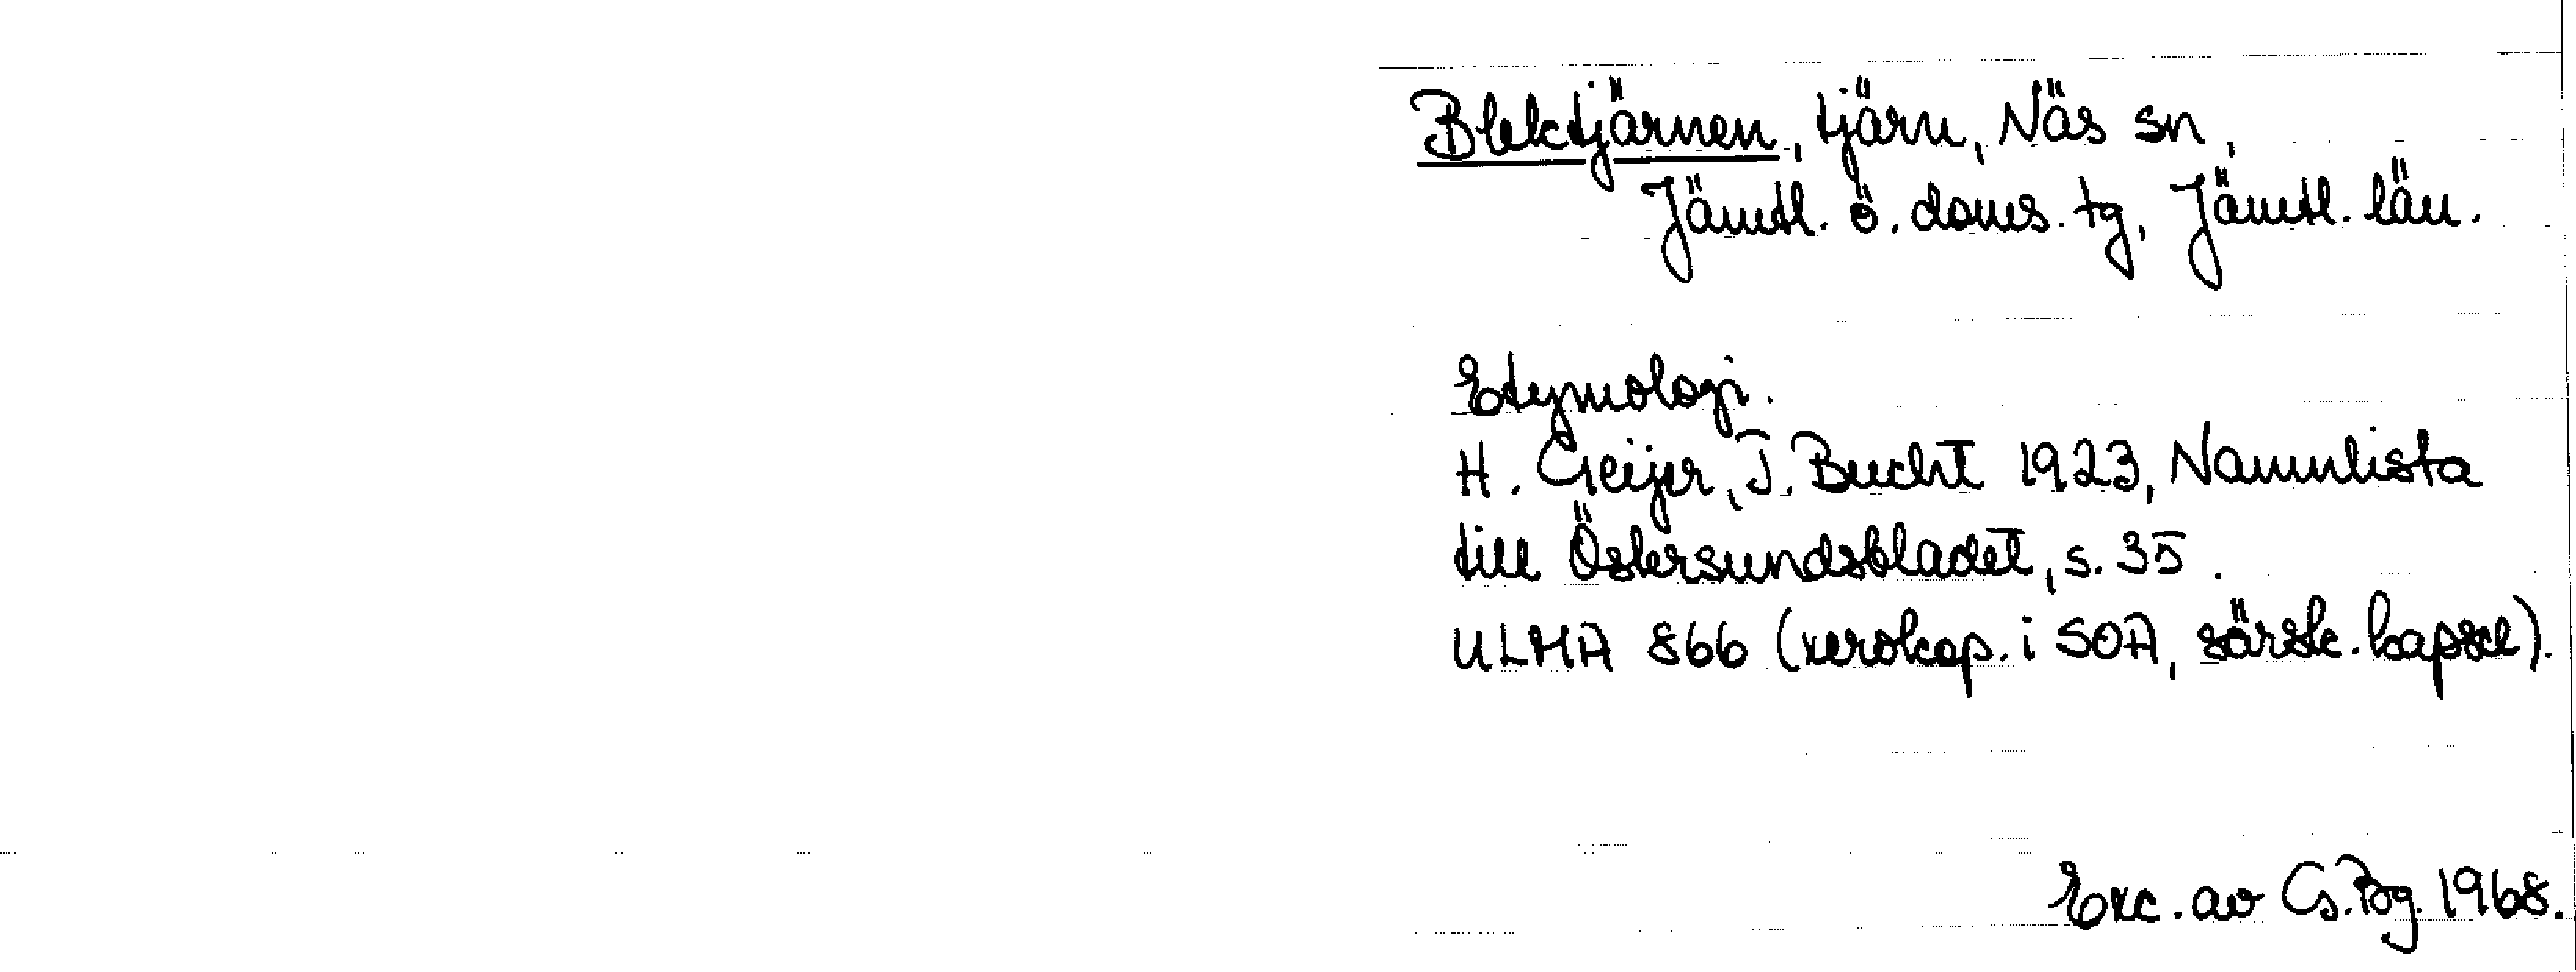 Blektjärnen, tjärn, Näs sn,
Jämtl. ö. doms. tg, Jämtl. län.
Etymologi.
H. Geijer, J. Bucht 1923, Namnlista
till Östersundsbladet, s. 35.
ULMA 866 (xerokop. i SOA, särsk. kapsel).
Exc. av G. Bg. 1968.